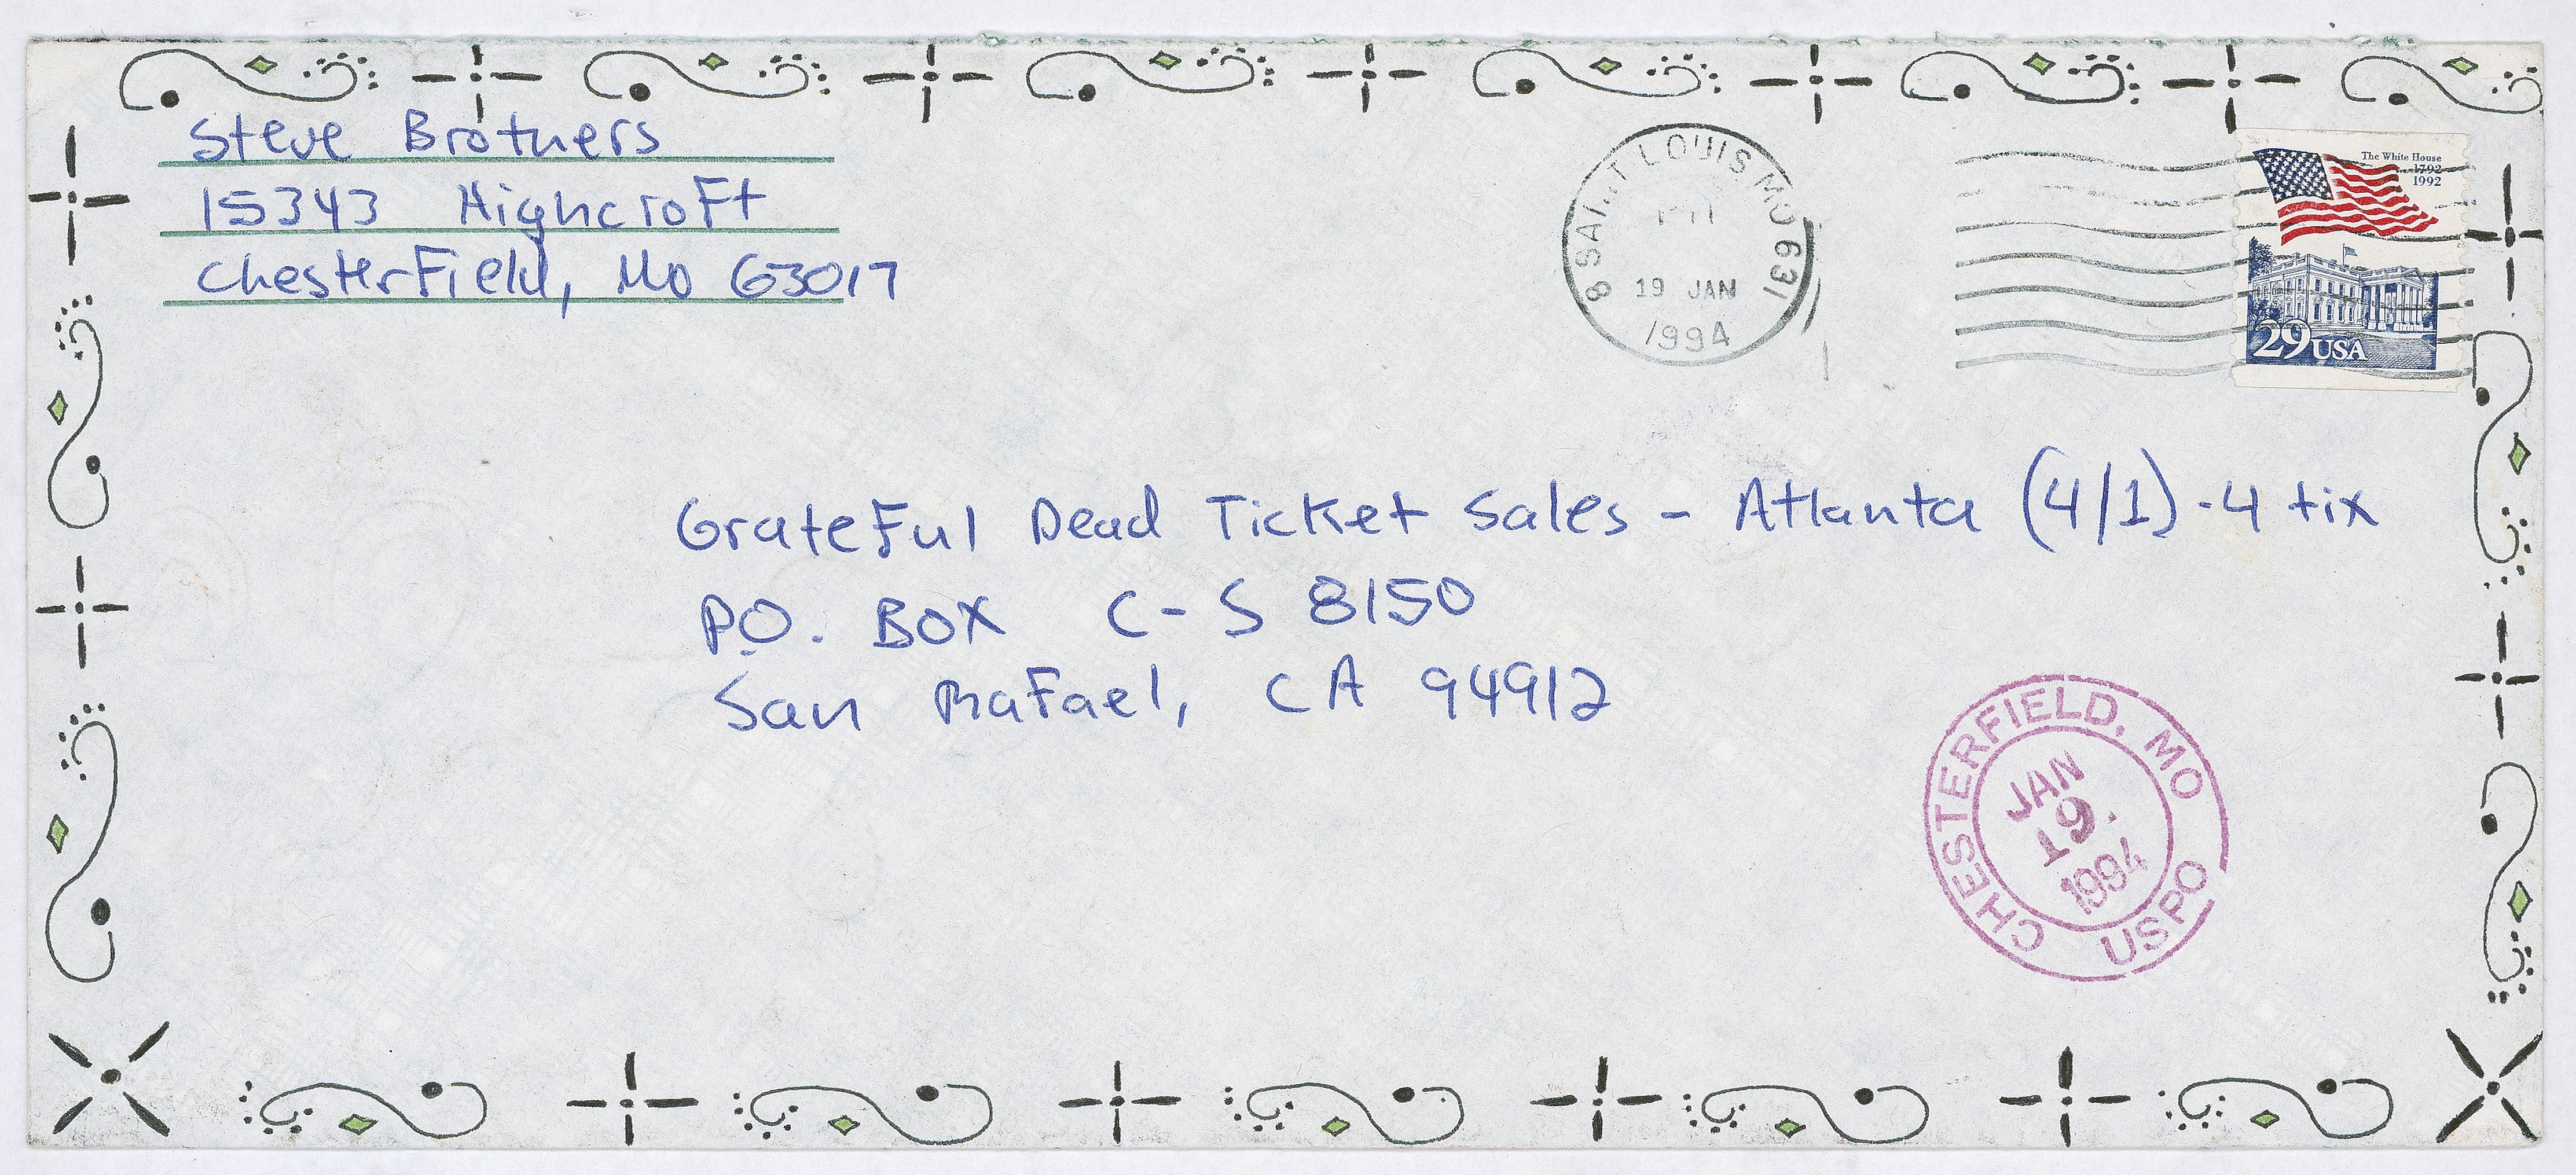 Steve Brothers
15343 Highcroft
Chesterfield, Mo 63017
SAINT LOUIS MO 631
PM
19 JAN
1994
The White House
1792
1992
29 USA
Grateful Dead Ticket Sales - Atlanta (4/1) - 4 tix
P.O. Box C-S 8150
San Rafael, CA 94912
CHESTERFIELD, MO
JAN
19
1994
USPO